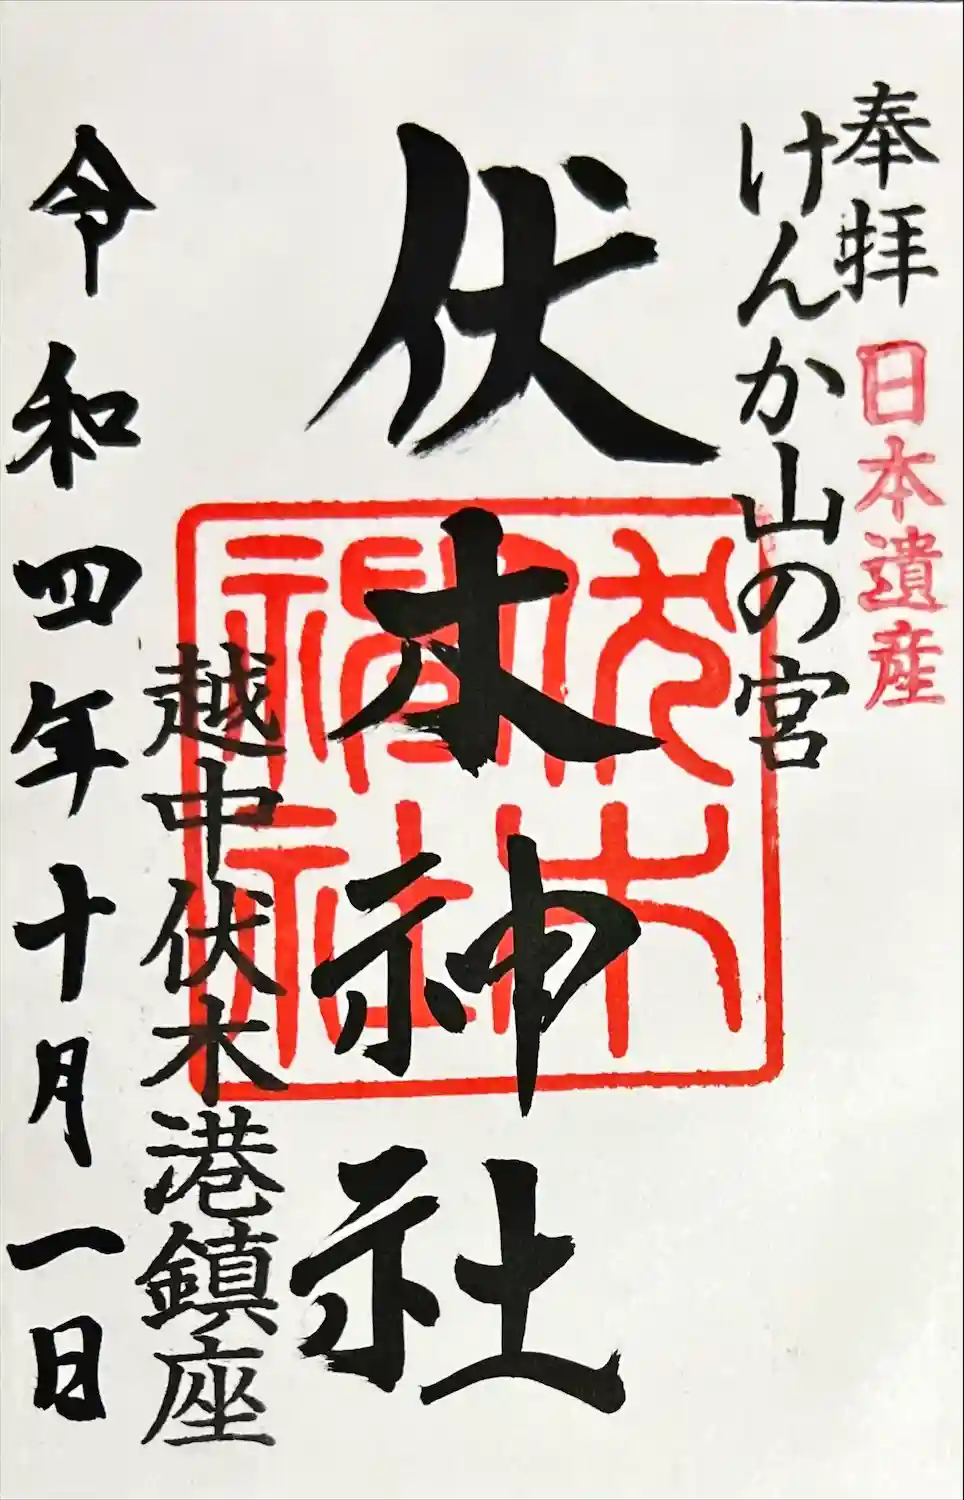 奉拝
日本遺産
けんか山の宮
伏木神社
伏木
神社
越中伏木港鎮座
令和四年十月一日